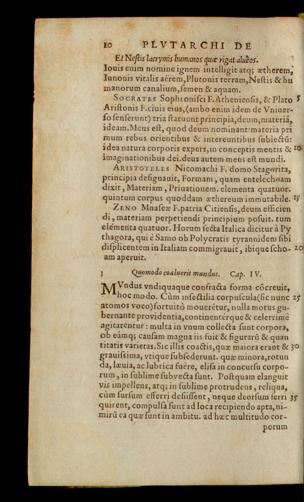 10 PLVTARCHI DE
Et Nestis lacrymis humanos quæ rigat alueos.
Iouis enim nomine ignem intelligit atq; ætherem,
Iunonis vitalis aërem, Plutonis terram, Nestis & hu
manorum canalium, semen & aquam.
SOCRATES Sophronisci F. Atheniensis, & Plato 5
Aristonis F. ciuis eius, (ambo enim idem de Vniuer-
so senserunt) tria statuunt principia, deum, materiā,
ideam. Mens est, quod deum nominant: materia pri
mum rebus orientibus & intereuntibus subiectū:
idea natura corporis expers, in conceptis mentis & 10
imaginationibus dei. deus autem mens est mundi.
ARISTOTELES Nicomachi F. domo Stagerita,
principia designauit, Formam, quam entelechiam
dixit, Materiam, Priuationem. elementa quatuor.
quintum corpus quoddam æthereum immutabile. 15
ZENO Mnaseæ F. patria Citiensis, deum efficien
di, materiam perpetiendi principium posuit. tum
elementa quatuor. Horum secta Italica dicitur à Py
thagora, qui è Samo ob Polycratis tyrannidem sibi
displicentem in Italiam commigrauit, ibique scho- 20
am aperuit.
Quomodo coaluerit mundus. Cap. IV.
MVndus vndiquaque confracta forma cōcreuit,
hoc modo. Cùm insectilia corpuscula (sic nunc 25
atomos voco) fortuitò mouerētur, nulla mens gu-
bernante prouidentia, continenterque & celerrimè
agitarētur: multa in vnum collecta sunt corpora,
ob eāmq; causam magna iis fuit & figurarū & quan
titatis varietas. Sic illis coactis, quæ maiora erant & 30
grauissima, vtique subsederunt. quæ minora, rotun
da, læuia, ac lubrica fuêre, elisa in concursu corpo-
rum, in sublime subuecta sunt. Postquam elanguit
vis impellens, atq; in sublime protrudens, reliqua,
cùm sursum efferri desissent, neque deorsum ferri 35
quirent, compulsa sunt ad loca recipiendo apta, ni-
mirū ea quæ sunt in ambitu. ad hæc multitudo cor-
porum